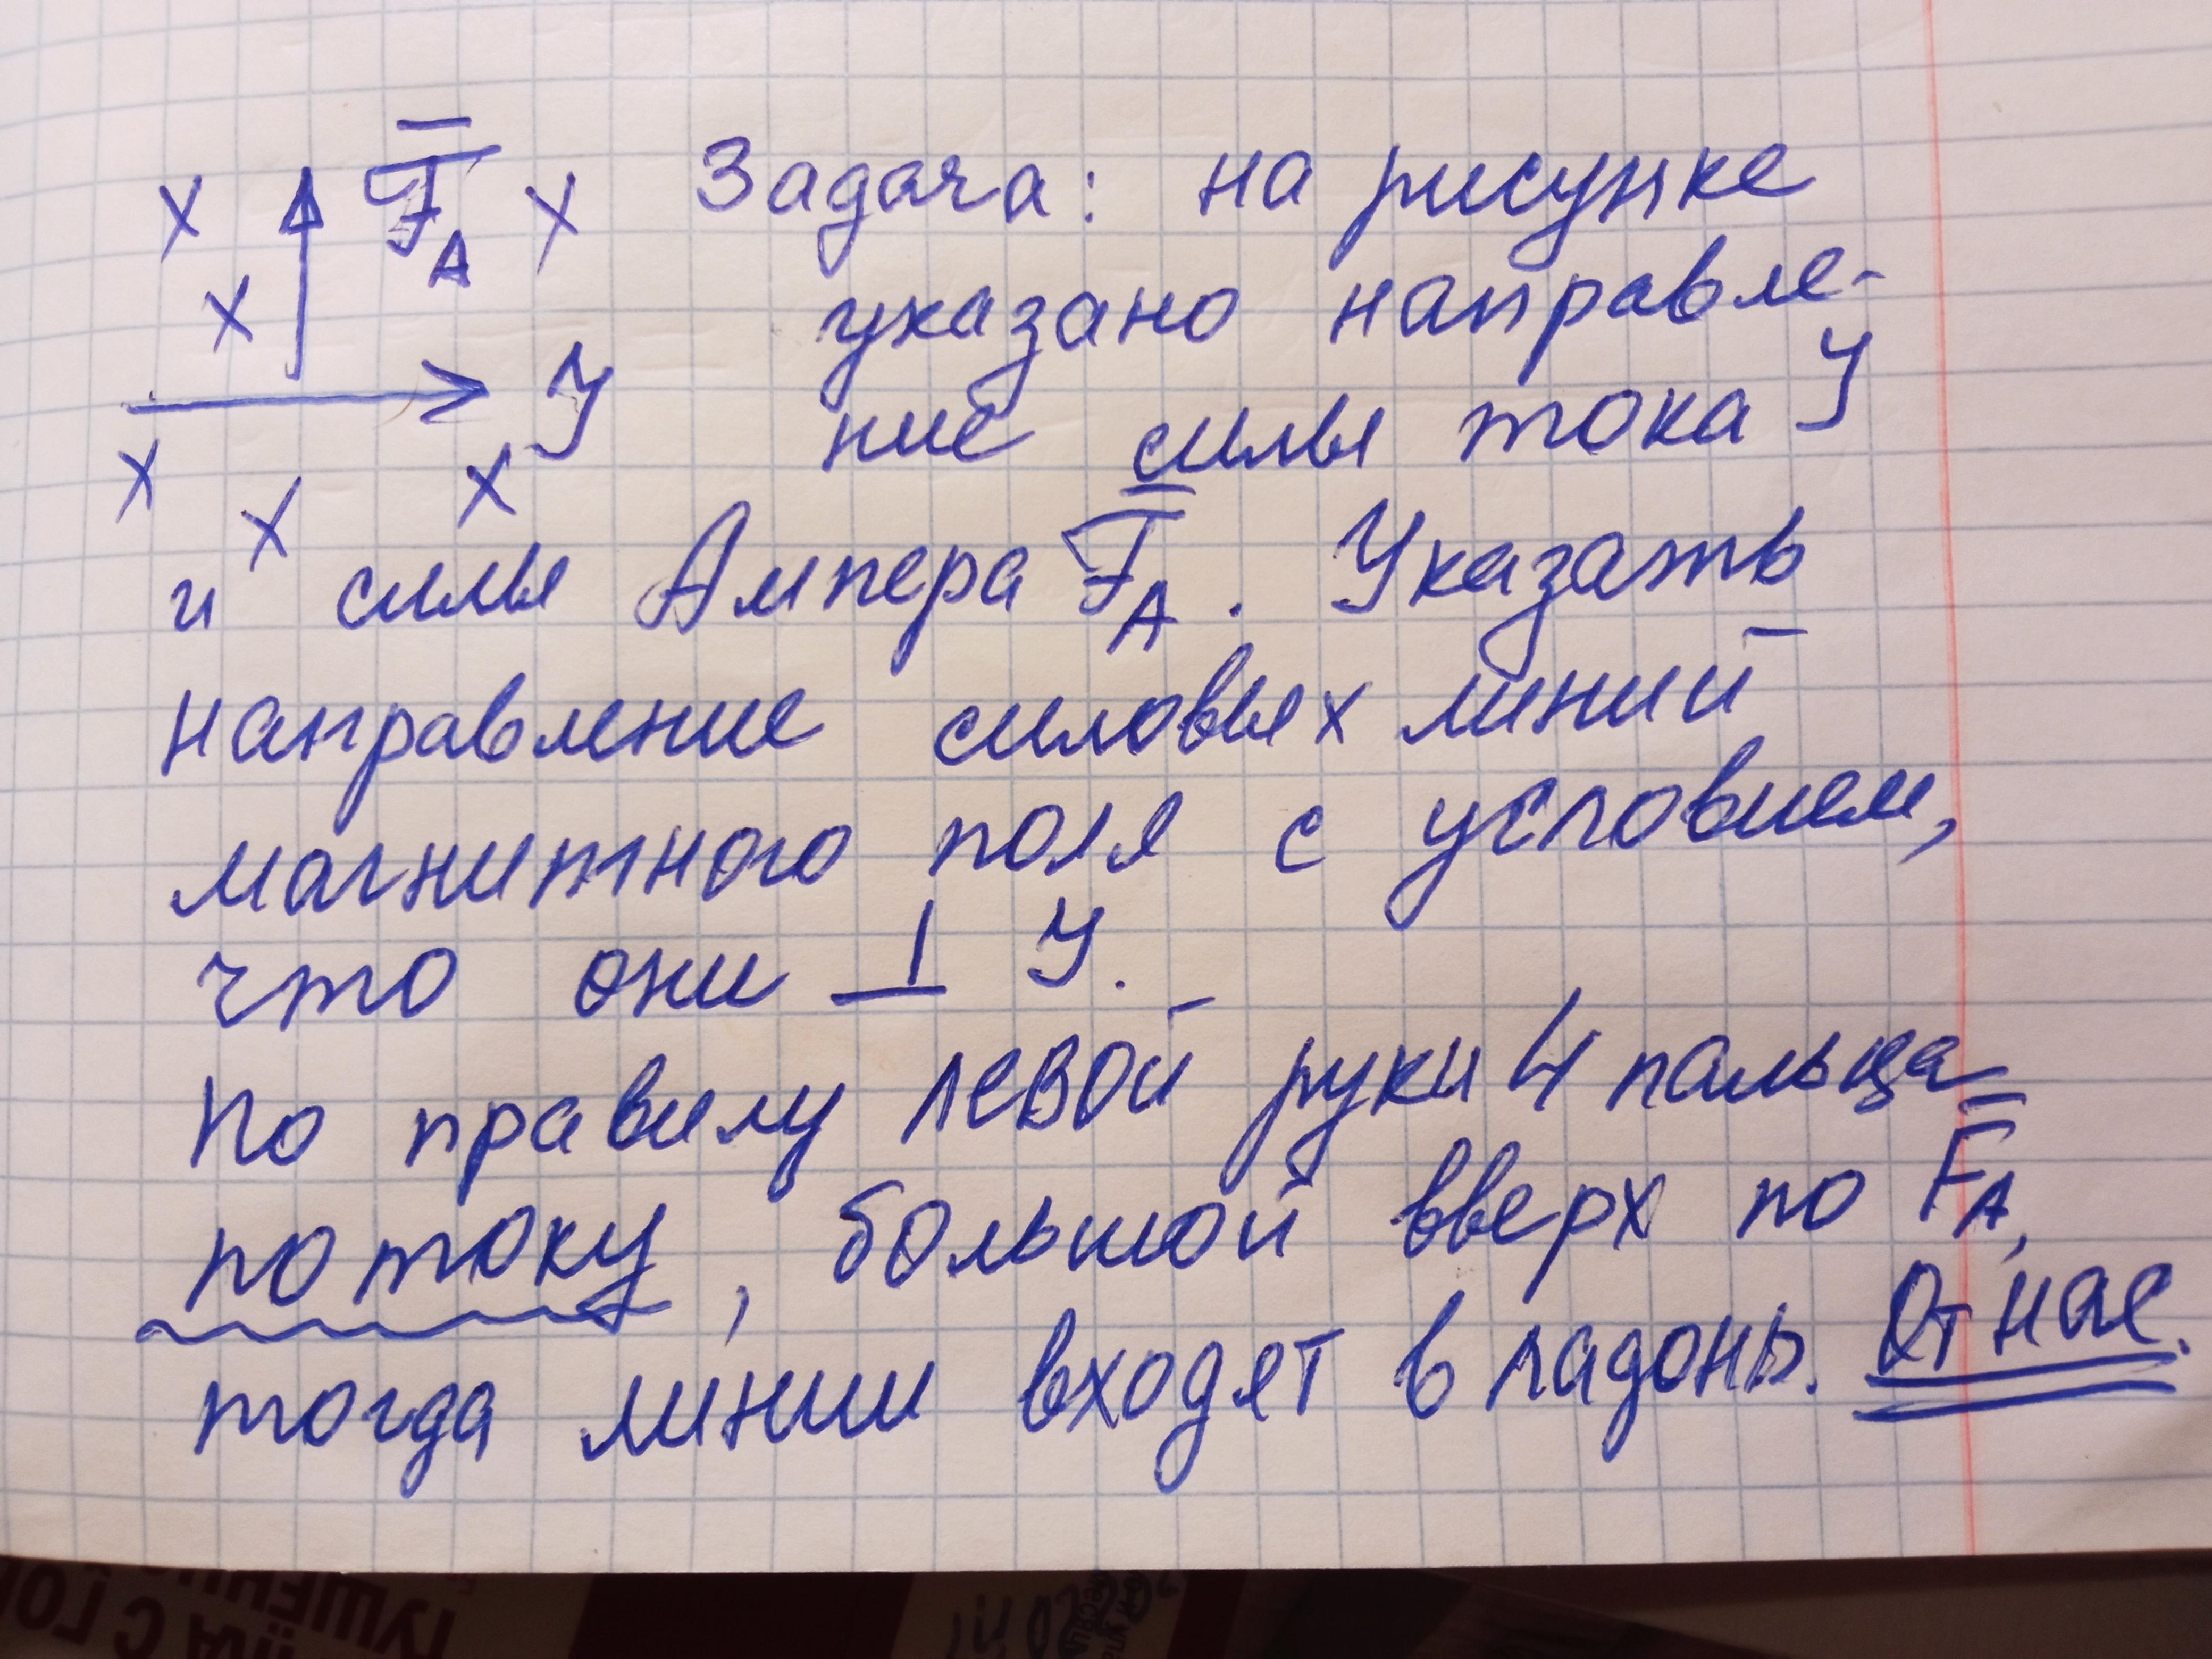 F̅_A
x x Задача: на рисунке
x указано направле-
J ние силы тока J
x x x
и силы Ампера F̅_A. Указать
направление силовых линий
магнитного поля с условием,
что они ⊥ J.
По правилу левой руки 4 пальца
по току, большой вверх по F̅_A,
тогда линии входят в ладонь. От нас.